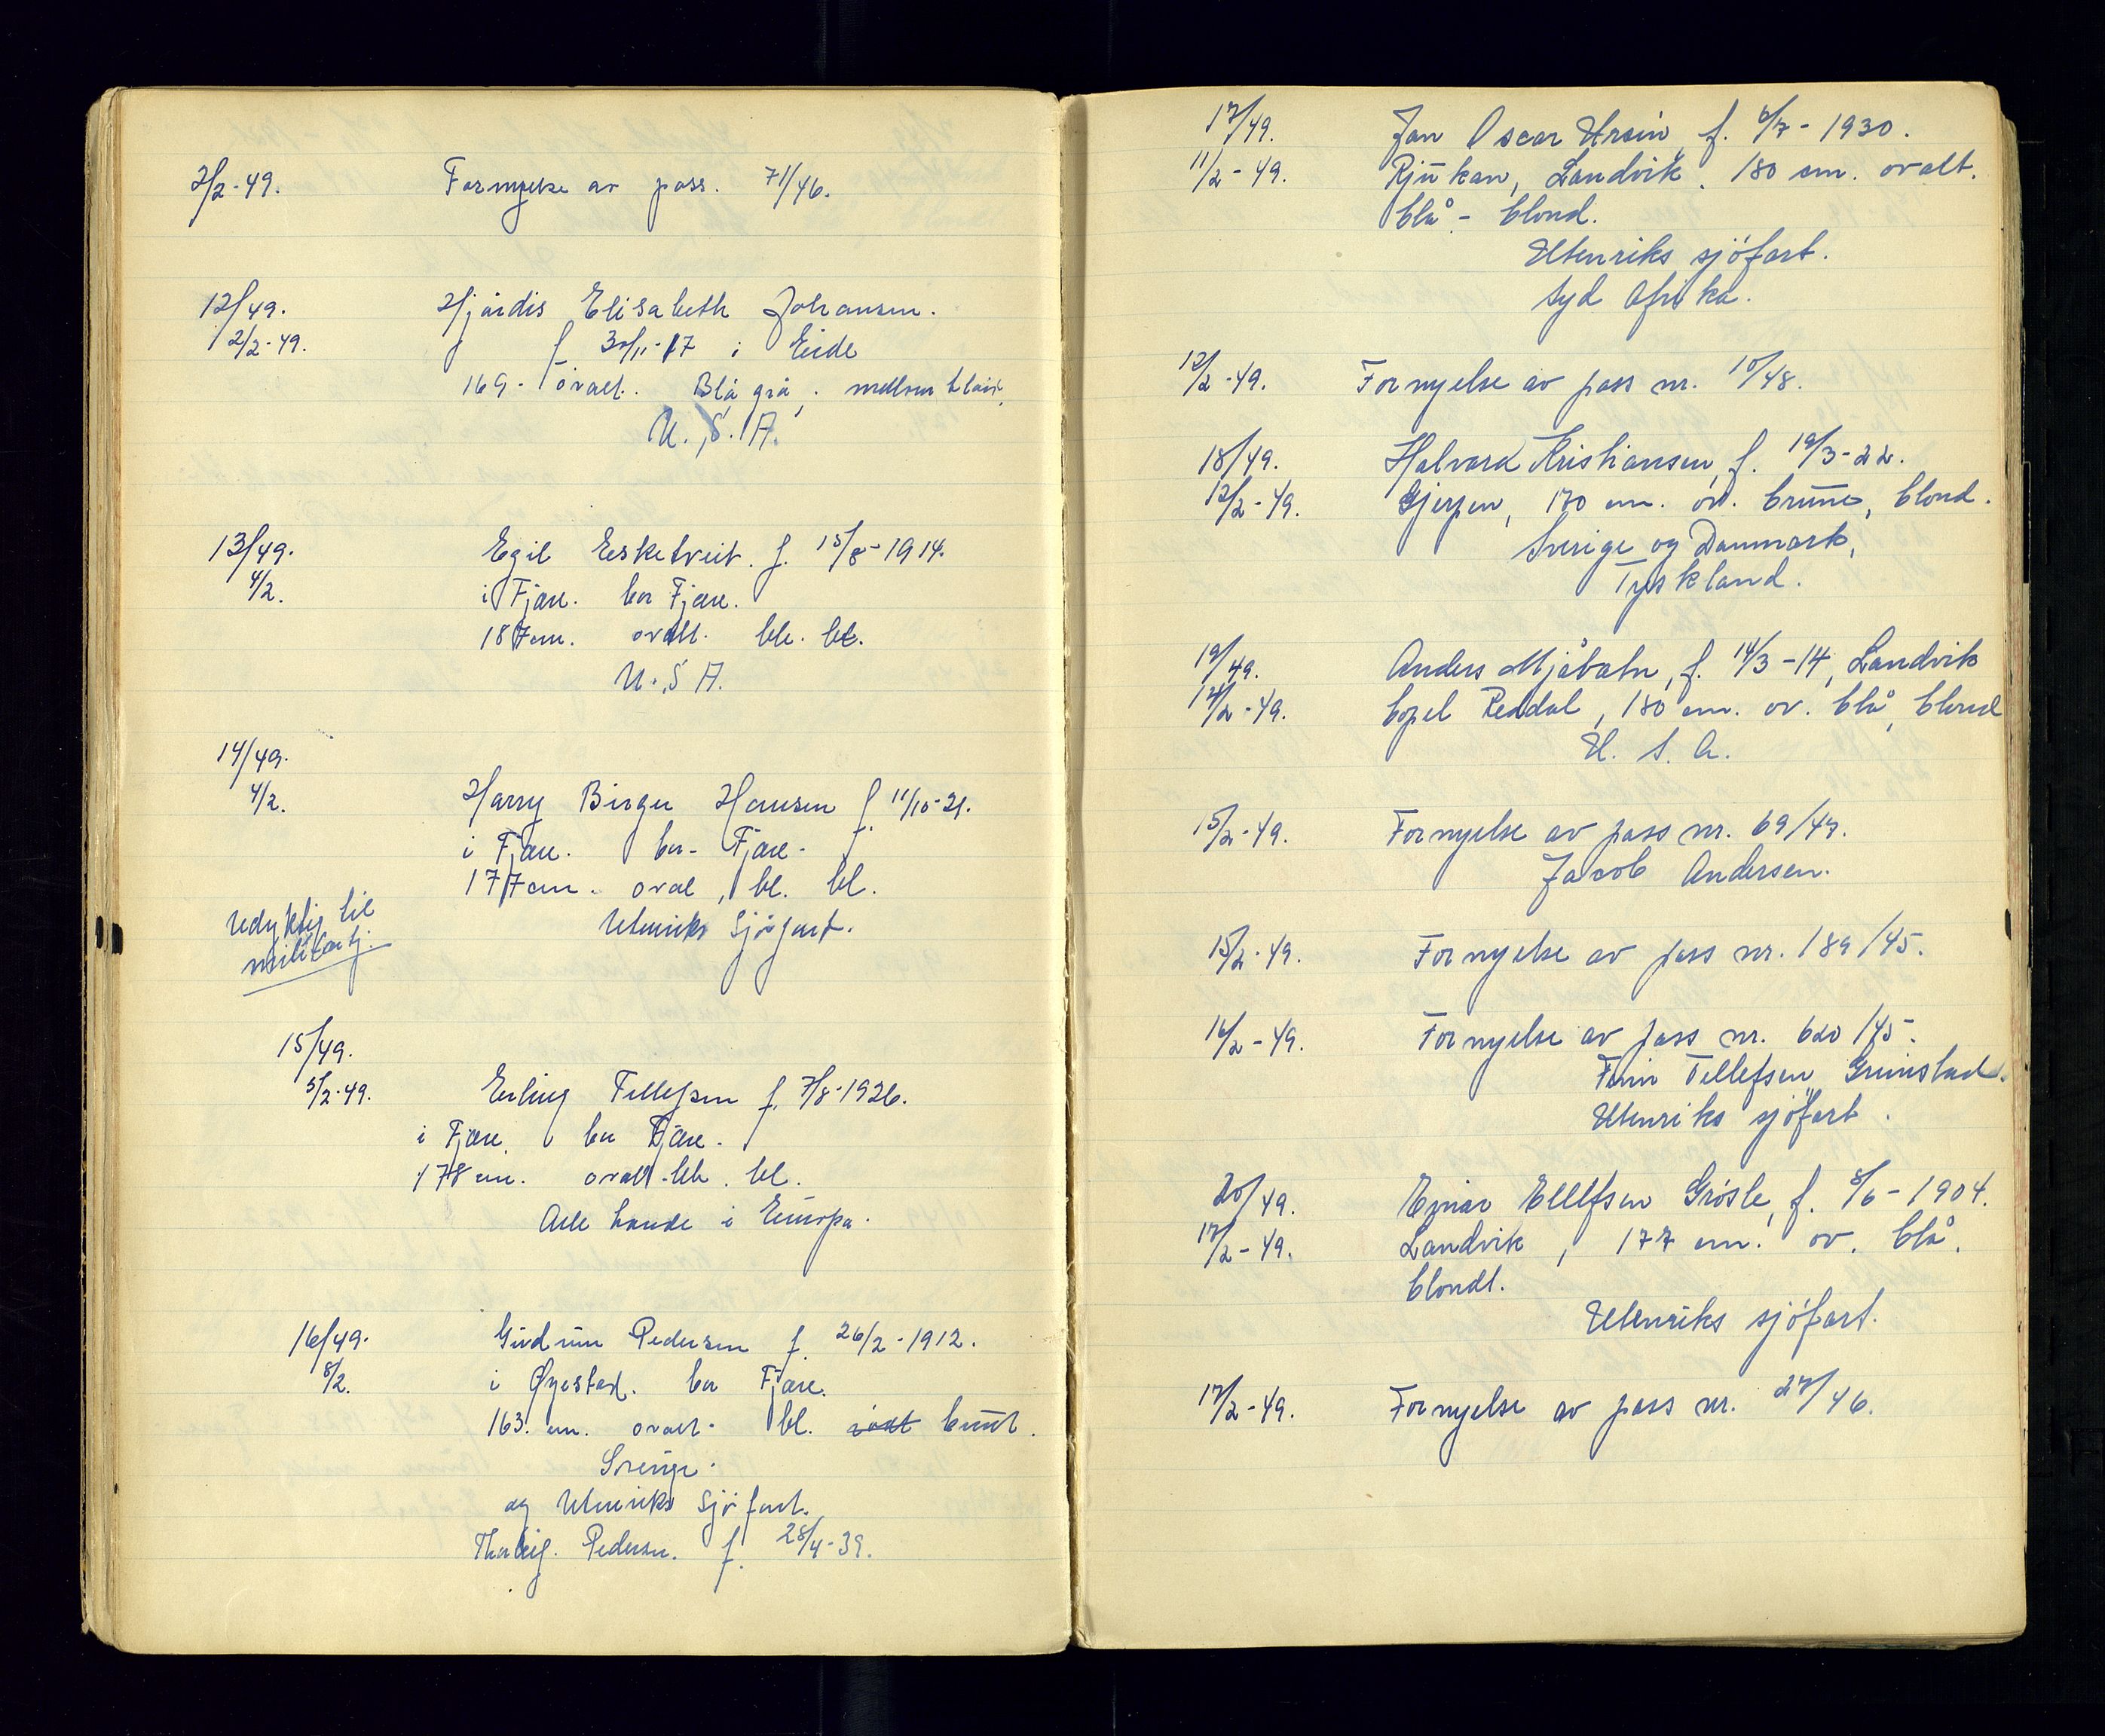 2/2-49. Fornyelse av pass. 71/46.
12/49. Hjördis Elisabeth Johansen.
2/2-49. f 30/11-17 i Eide
169- ovalt. Blå grå, mellom blond,
U.S.A.
13/49. Egil Eskedveit. f. 15/8-1914.
4/2. i Fjære. bor Fjære.
187cm. ovalt. blå. bl.
U.S.A.
14/49.
4/2. Harry Birger Hansen f. 11/10-29.
i Fjære. bor- Fjære-
177cm. oval, bl. bl.
Udyktig til Utenriks Sjöfart.
militærtj.
15/49.
5/2-49. Erling Tellefsen f. 7/8-1926.
i Fjære. bor Fjære.
178 cm. ovalt. blå. bl.
Alle lande i Europa.
16/49. Gudrun Pedersen f. 26/2-1912.
8/2. i Øyestad. bor Fjære.
163. cm. ovalt- bl. rödt brunt.
Sverige.
og Utenriks Sjöfart.
Pedersen. f. 28/4-39.
17/49. Jan Oscar Ursin, f. 6/7-1930.
11/2-49. Rjukan, Landvik, 180 cm. ovalt.
blå- blond.
Utenriks sjöfart.
Syd Afrika.
12/2-49. Fornyelse av pass nr. 10/48.
18/49. Halvard Kristiansen, f. 19/3-22.
12/2-49. Gjerpen, 170 cm. ov. brune, blond.
Sverige og Danmark,
Tyskland.
19/49. Anders Mjåvatn, f. 14/3-14, Landvik
14/2-49. bopel Reddal, 180 cm. ov. blå, blond
U. S. A.
15/2-49. Fornyelse av pass nr. 69/47.
Jacob Andersen.
15/2-49. Fornyelse av pass nr. 189/45.
16/2-49. Fornyelse av pass nr. 620/45.
Finn Tellefsen, Grimstad.
Utenriks sjöfart.
20/49. Einar Ellefsen Grösle, f. 8/6-1904.
17/2-49. Landvik, 177 cm. ov. blå,
blondt.
Utenriks sjöfart.
17/2-49. Fornyelse av pass nr. 27/46.